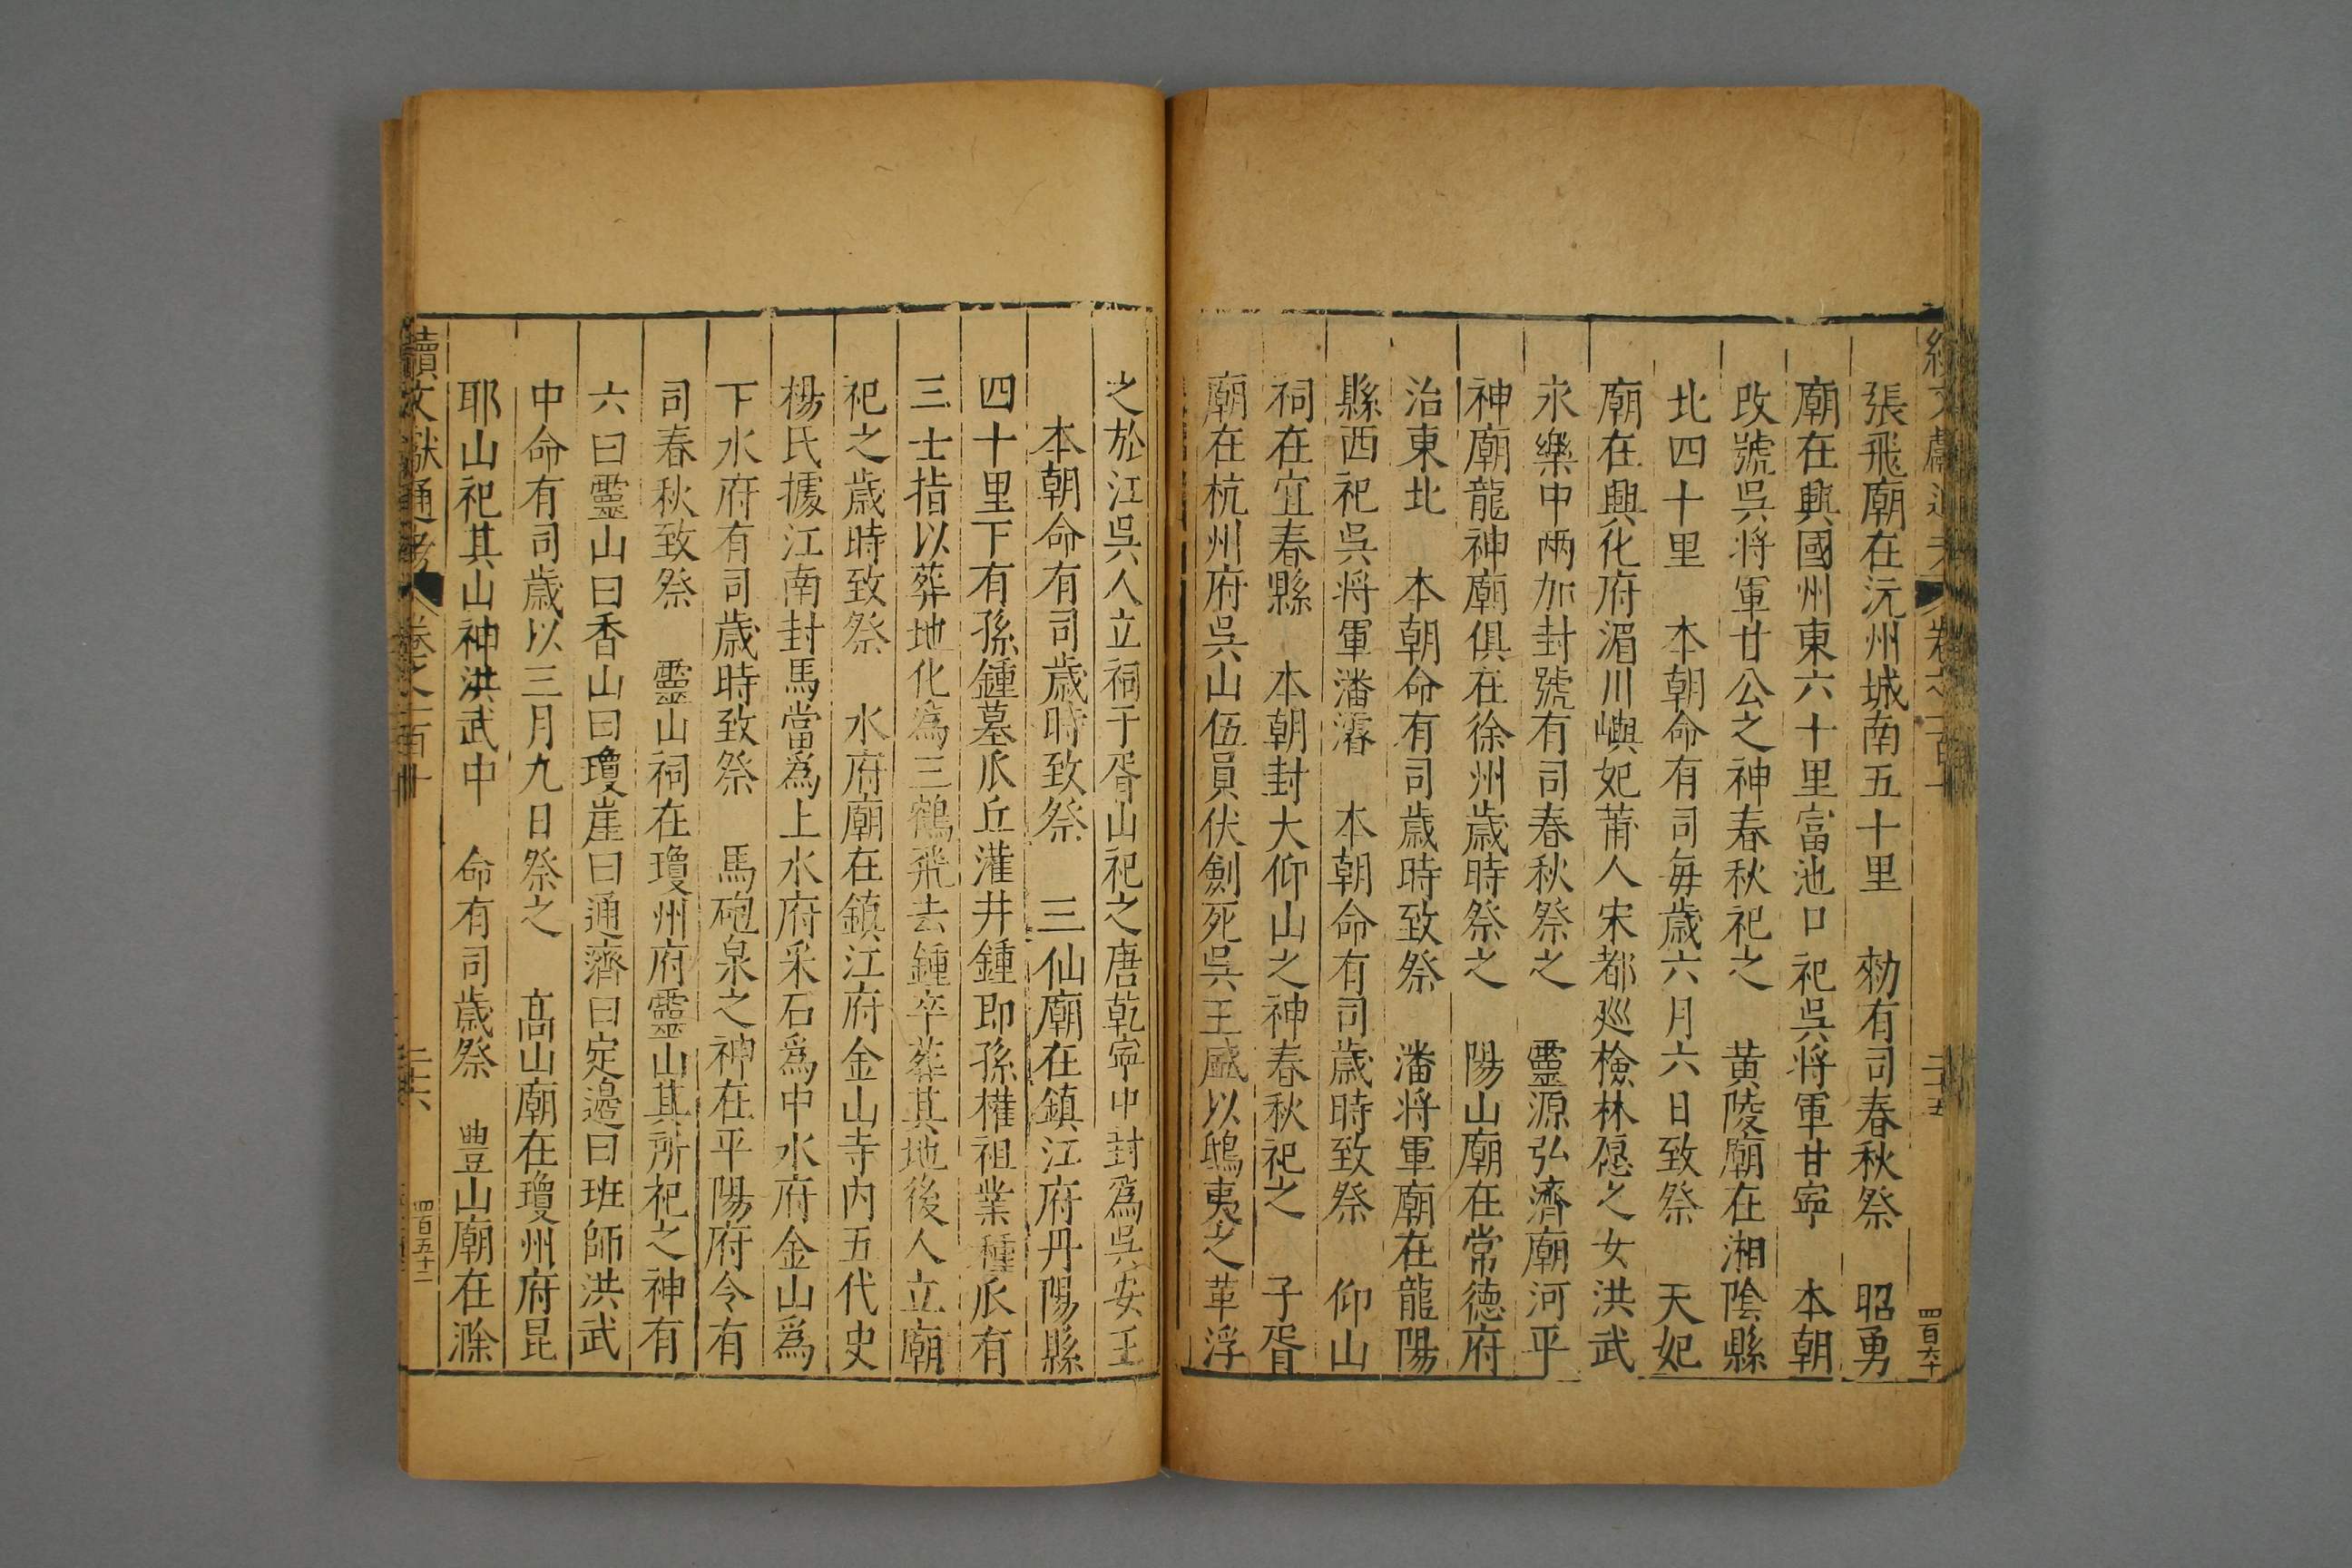 張飛廟在沅州城南五十里　勑有司春秋祭　昭勇
廟在興國州東六十里富池口祀吳将軍甘寧　本朝
改號吳将軍甘公之神春秋祀之　黄陵廟在湘陰縣
北四十里　本朝命有司每歲六月六日致祭　天妃
廟在興化府湄川嶼妃莆人宋都廵檢林愿之女洪武
永樂中兩加封號有司春秋祭之　靈源弘濟廟河平
神廟龍神廟俱在徐州歲時祭之　陽山廟在常德府
治東北　本朝命有司歲時致祭　潘将軍廟在龍陽
縣西祀吳将軍潘濬　本朝命有司歲時致祭　仰山
祠在宜春縣　本朝封大仰山之神春秋祀之　子胥
廟在杭州府吳山伍員伏劍死吳王盛以鴟夷之革浮
之於江吳人立祠于胥山祀之唐乾寧中封爲吳安王
本朝命有司歲時致祭　三仙廟在鎮江府丹陽縣
四十里下有孫鍾墓瓜丘灌井鍾即孫權祖業種瓜有
三士指以葬地化為三鶴飛去鍾卒葬其地後人立廟
祀之歲時致祭　水府廟在鎮江府金山寺内五代史
楊氏據江南封馬當爲上水府采石爲中水府金山爲
下水府有司歲時致祭　馬砲泉之神在平陽府令有
司春秋致祭　靈山祠在瓊州府靈山其所祀之神有
六曰靈山曰香山曰瓊崖曰通濟曰定邊曰班師洪武
中命有司歲以三月九日祭之　髙山廟在瓊州府昆
耶山祀其山神洪武中　命有司歲祭　豊山廟在滁
續文獻通考　卷之一百十　二十六　四百五十二